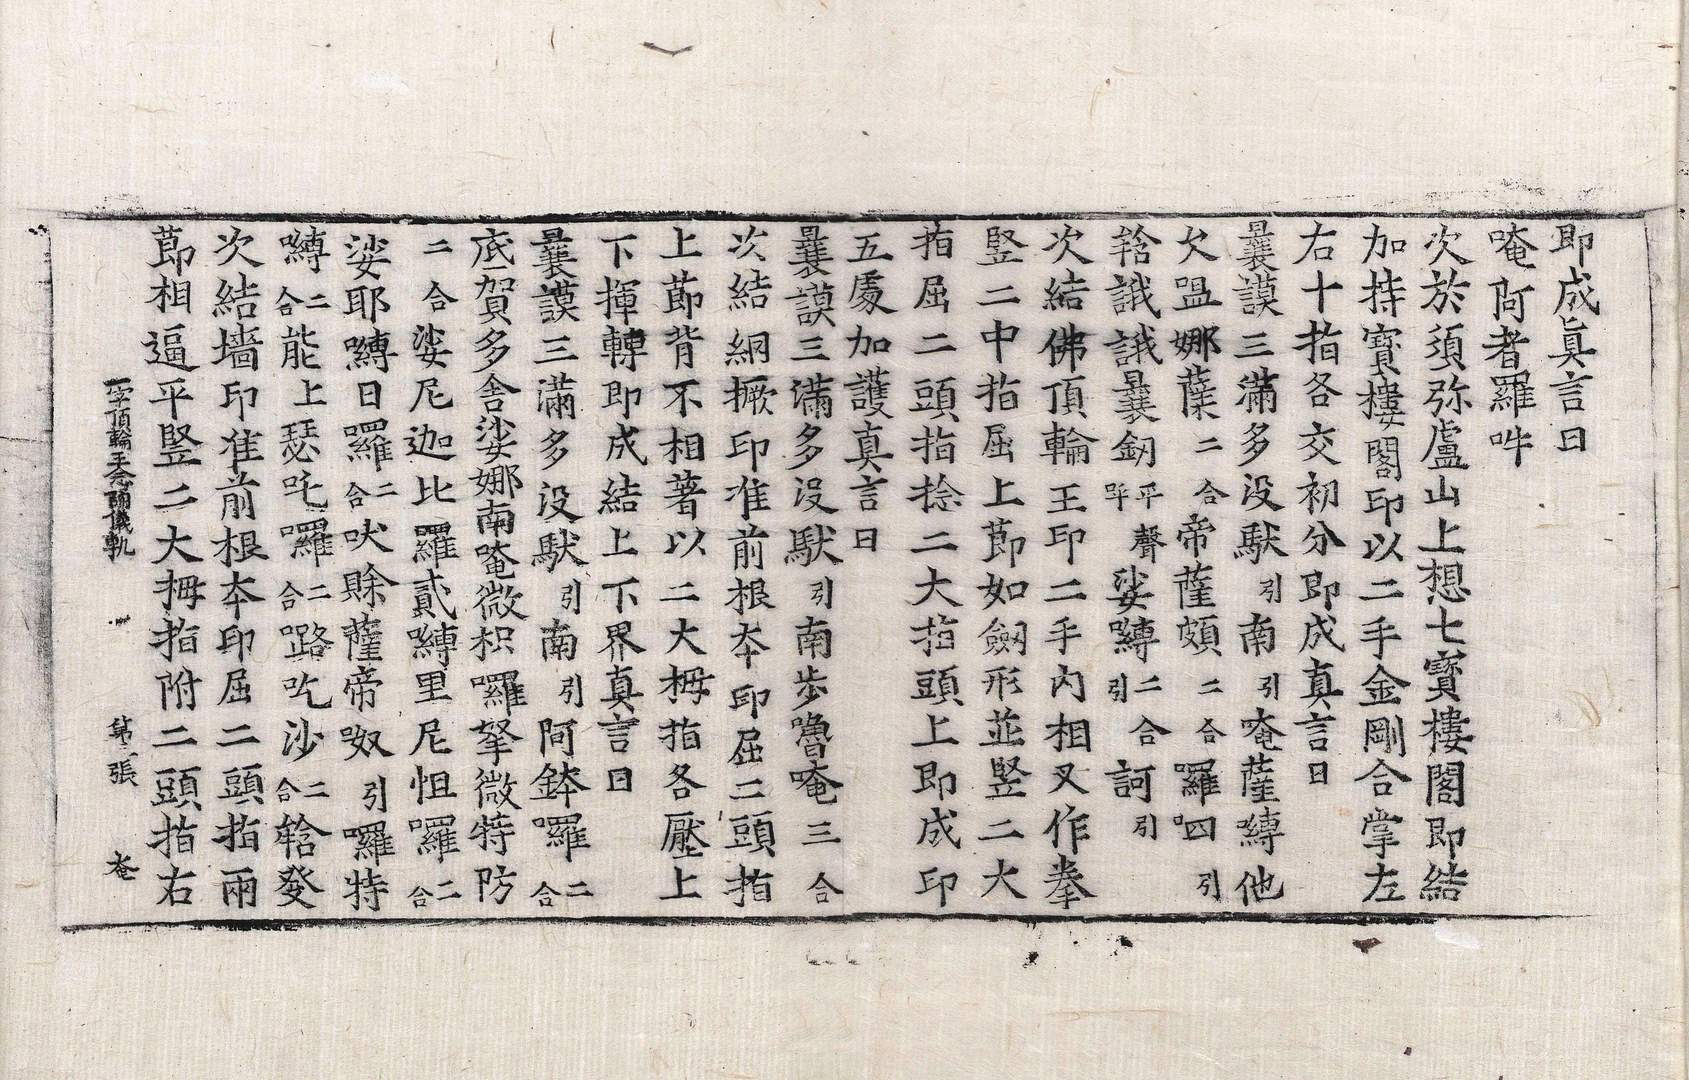 即成真言曰
唵阿者羅吽
次於須弥盧山上想七寶樓閣即結
加持寶樓閣印以二手金剛合掌左
右十指各交初分即成真言曰
曩謨三滿多沒馱引南引唵薩嚩他
欠嗢娜蘖二合帝薩頗二合囉四引
䶎誐誐曩釰平聲呼娑嚩二合引訶引
次結佛頂輪王印二手內相叉作拳
竪二中指屈上節如劒形並竪二大
指屈二頭指捻二大指頭上即成印
五處加護真言曰
曩謨三滿多沒馱引南步嚕唵三合
次結綗橛印准前根本印屈二頭指
上節背不相著以二大拇指各壓上
下揮轉即成結上下界真言曰
曩謨三滿多沒馱引南引阿鉢囉二合
底賀多舍娑娜南唵微枳囉拏微特防
二合娑尼迦比羅貳嚩里尼怛囉二合
娑耶嚩日囉二合吠賒薩帝奴引囉特
嚩二合能上瑟吒囉二合路吃沙二合䶎發
次結墻印准前根本印屈二頭指兩
節相逼平竪二大拇指附二頭指右
一字頂輪王念誦儀軌 第二張 卷